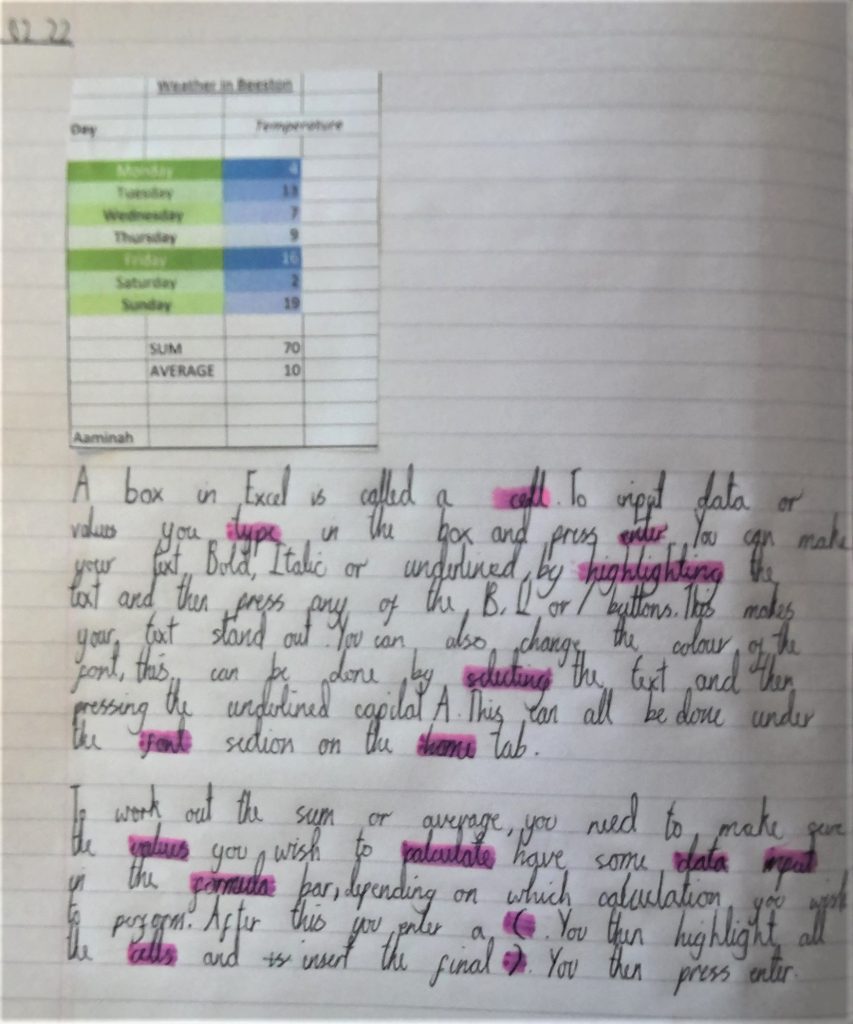 02 22
Weather in Beeston
Day Temperature
Monday 4
Tuesday 13
Wednesday 7
Thursday 9
Friday 16
Saturday 2
Sunday 19
SUM 70
AVERAGE 10
Aaminah
A box in Excel is called a cell. To input data or
values you type in the box and press enter. You can make
your text Bold, Italic or underlined, by highlighting the
text and then press any of the B, U or I buttons. This makes
your text stand out. You can also change the colour of the
font, this can be done by selecting the text and then
pressing the underlined capital A. This can all be done under
the font section on the home tab.
To work out the sum or average, you need to make sure
the values you wish to calculate have some data input
in the formula bar, depending on which calculation you wish
to perform. After this you enter a (. You then highlight all
the cells and insert the final ). You then press enter.